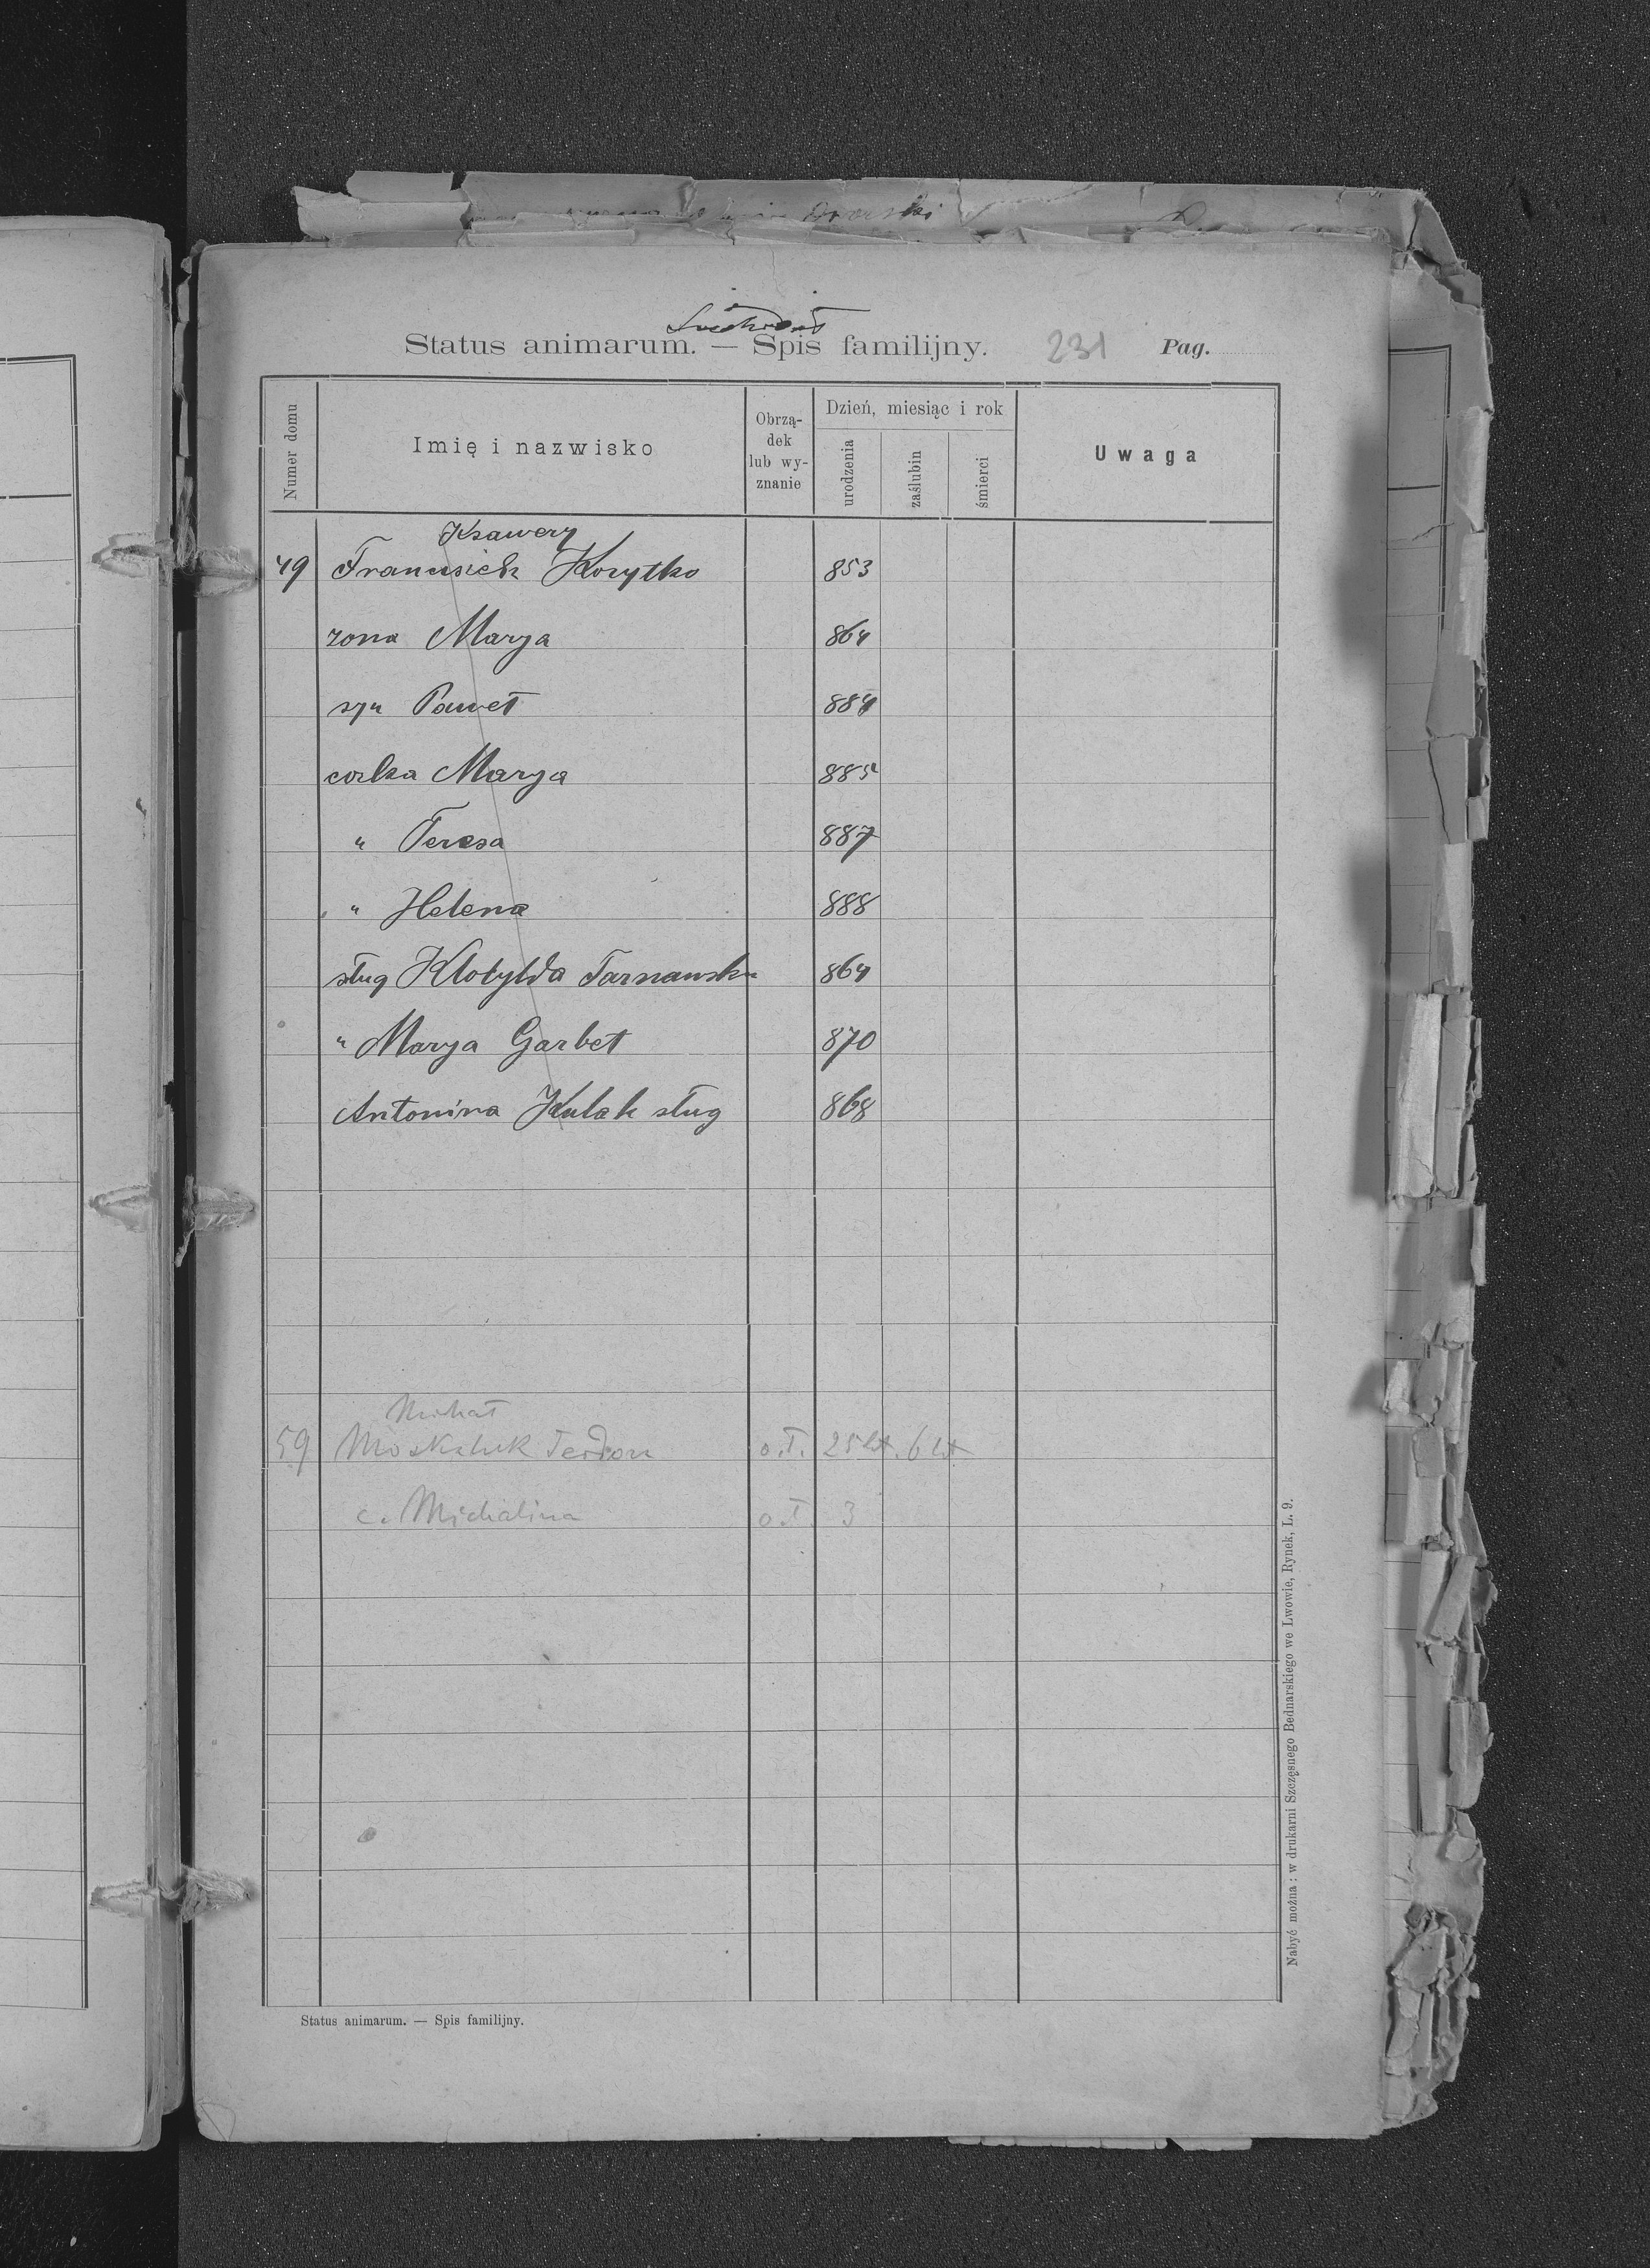 Status animarum. — Spis familijny. 231 Pag.
Numer domu
Imię i nazwisko
Obrzą-
dek
lub wy-
znanie
Dzień, miesiąc i rok
urodzenia
zaślubin
śmierci
Uwaga
Ksawery
49 Francisiek Korytko 853
zona Marya 864
syn Paweł 884
corka Marya 885
" Teresa 887
" Helena 888
sług Klotylda Tarnawska 864
" Marya Garbet 870
Antonina Kulak sług 868
Michał
59 Moskaluk o.ł. 25 lat. 6 lat
c. Michalina o.ł. 3
Status animarum. — Spis familijny.
Nabyć można: w drukarni Szczęsnego Bednarskiego we Lwowie, Rynek, L. 9.